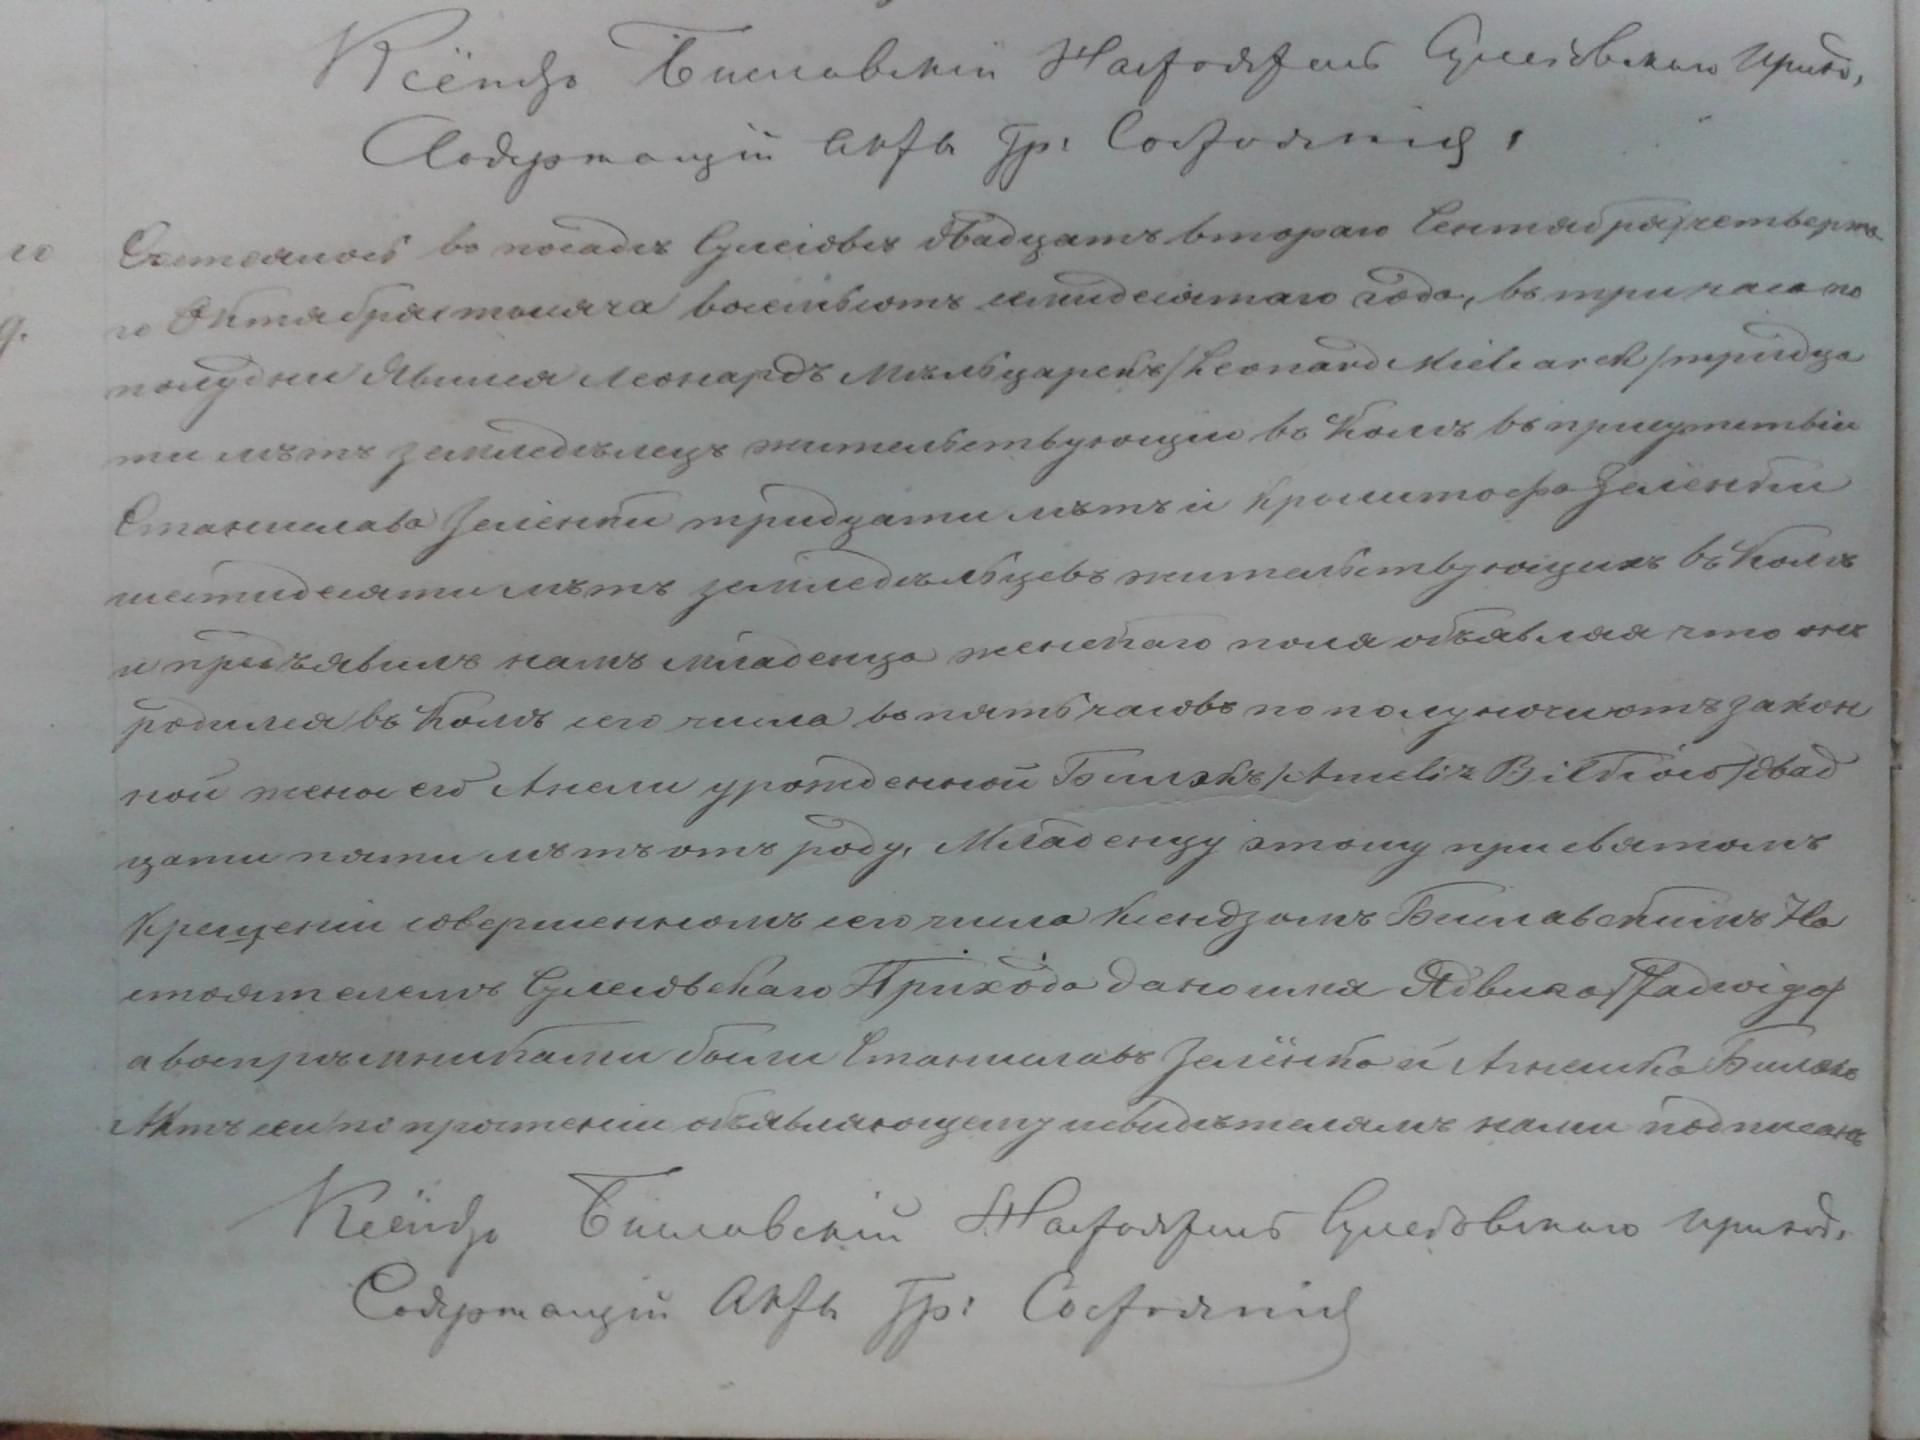 Ксёндзъ Биславскій Настоятель Сулеювскаго прихо,
Содержащій Акты Гр: Состоянія,
го Состоялось во посадѣ Сулеіовѣ двадцать втораго Сентября/четверта
го Октября тысяча восемьсотъ семидесятаго года, въ три часа по
д. полудни Явился Леонардъ Мѣльцарекъ/Leonard Mielcarek/тридца
ти лѣтъ земледѣлецъ жительствующій въ Колѣ въ присутствіи
Станислава Зелёнки тридцати лѣтъ и Криштофа Зелёнки
шестидесяти лѣтъ земледѣльцевъ жительствующихъ въ Колѣ
и предъявилъ намъ младенца женскаго пола объявляя что онъ
родился въ Колѣ сего числа въ пять часовъ по полуночи отъ закон
ной жены его Анели урожденной /двад
цати пяти лѣтъ отъ роду, Младенцу этому при святомъ
крещеніи совершенномъ сего числа Ксендзомъ Биславскимъ На
стоятелемъ Сулеювскаго Прихода дано имя Ядвига/Jadwiga/
а воспріемниками были Станиславъ Зелёнка и Агнешка
Актъ сей по прочтеніи объявляющему и свидѣтелямъ нами подписанъ
Ксёндзъ Биславскій Настоятель Сулеювскаго приход,
Содержащій Акты Гр: Состоянія